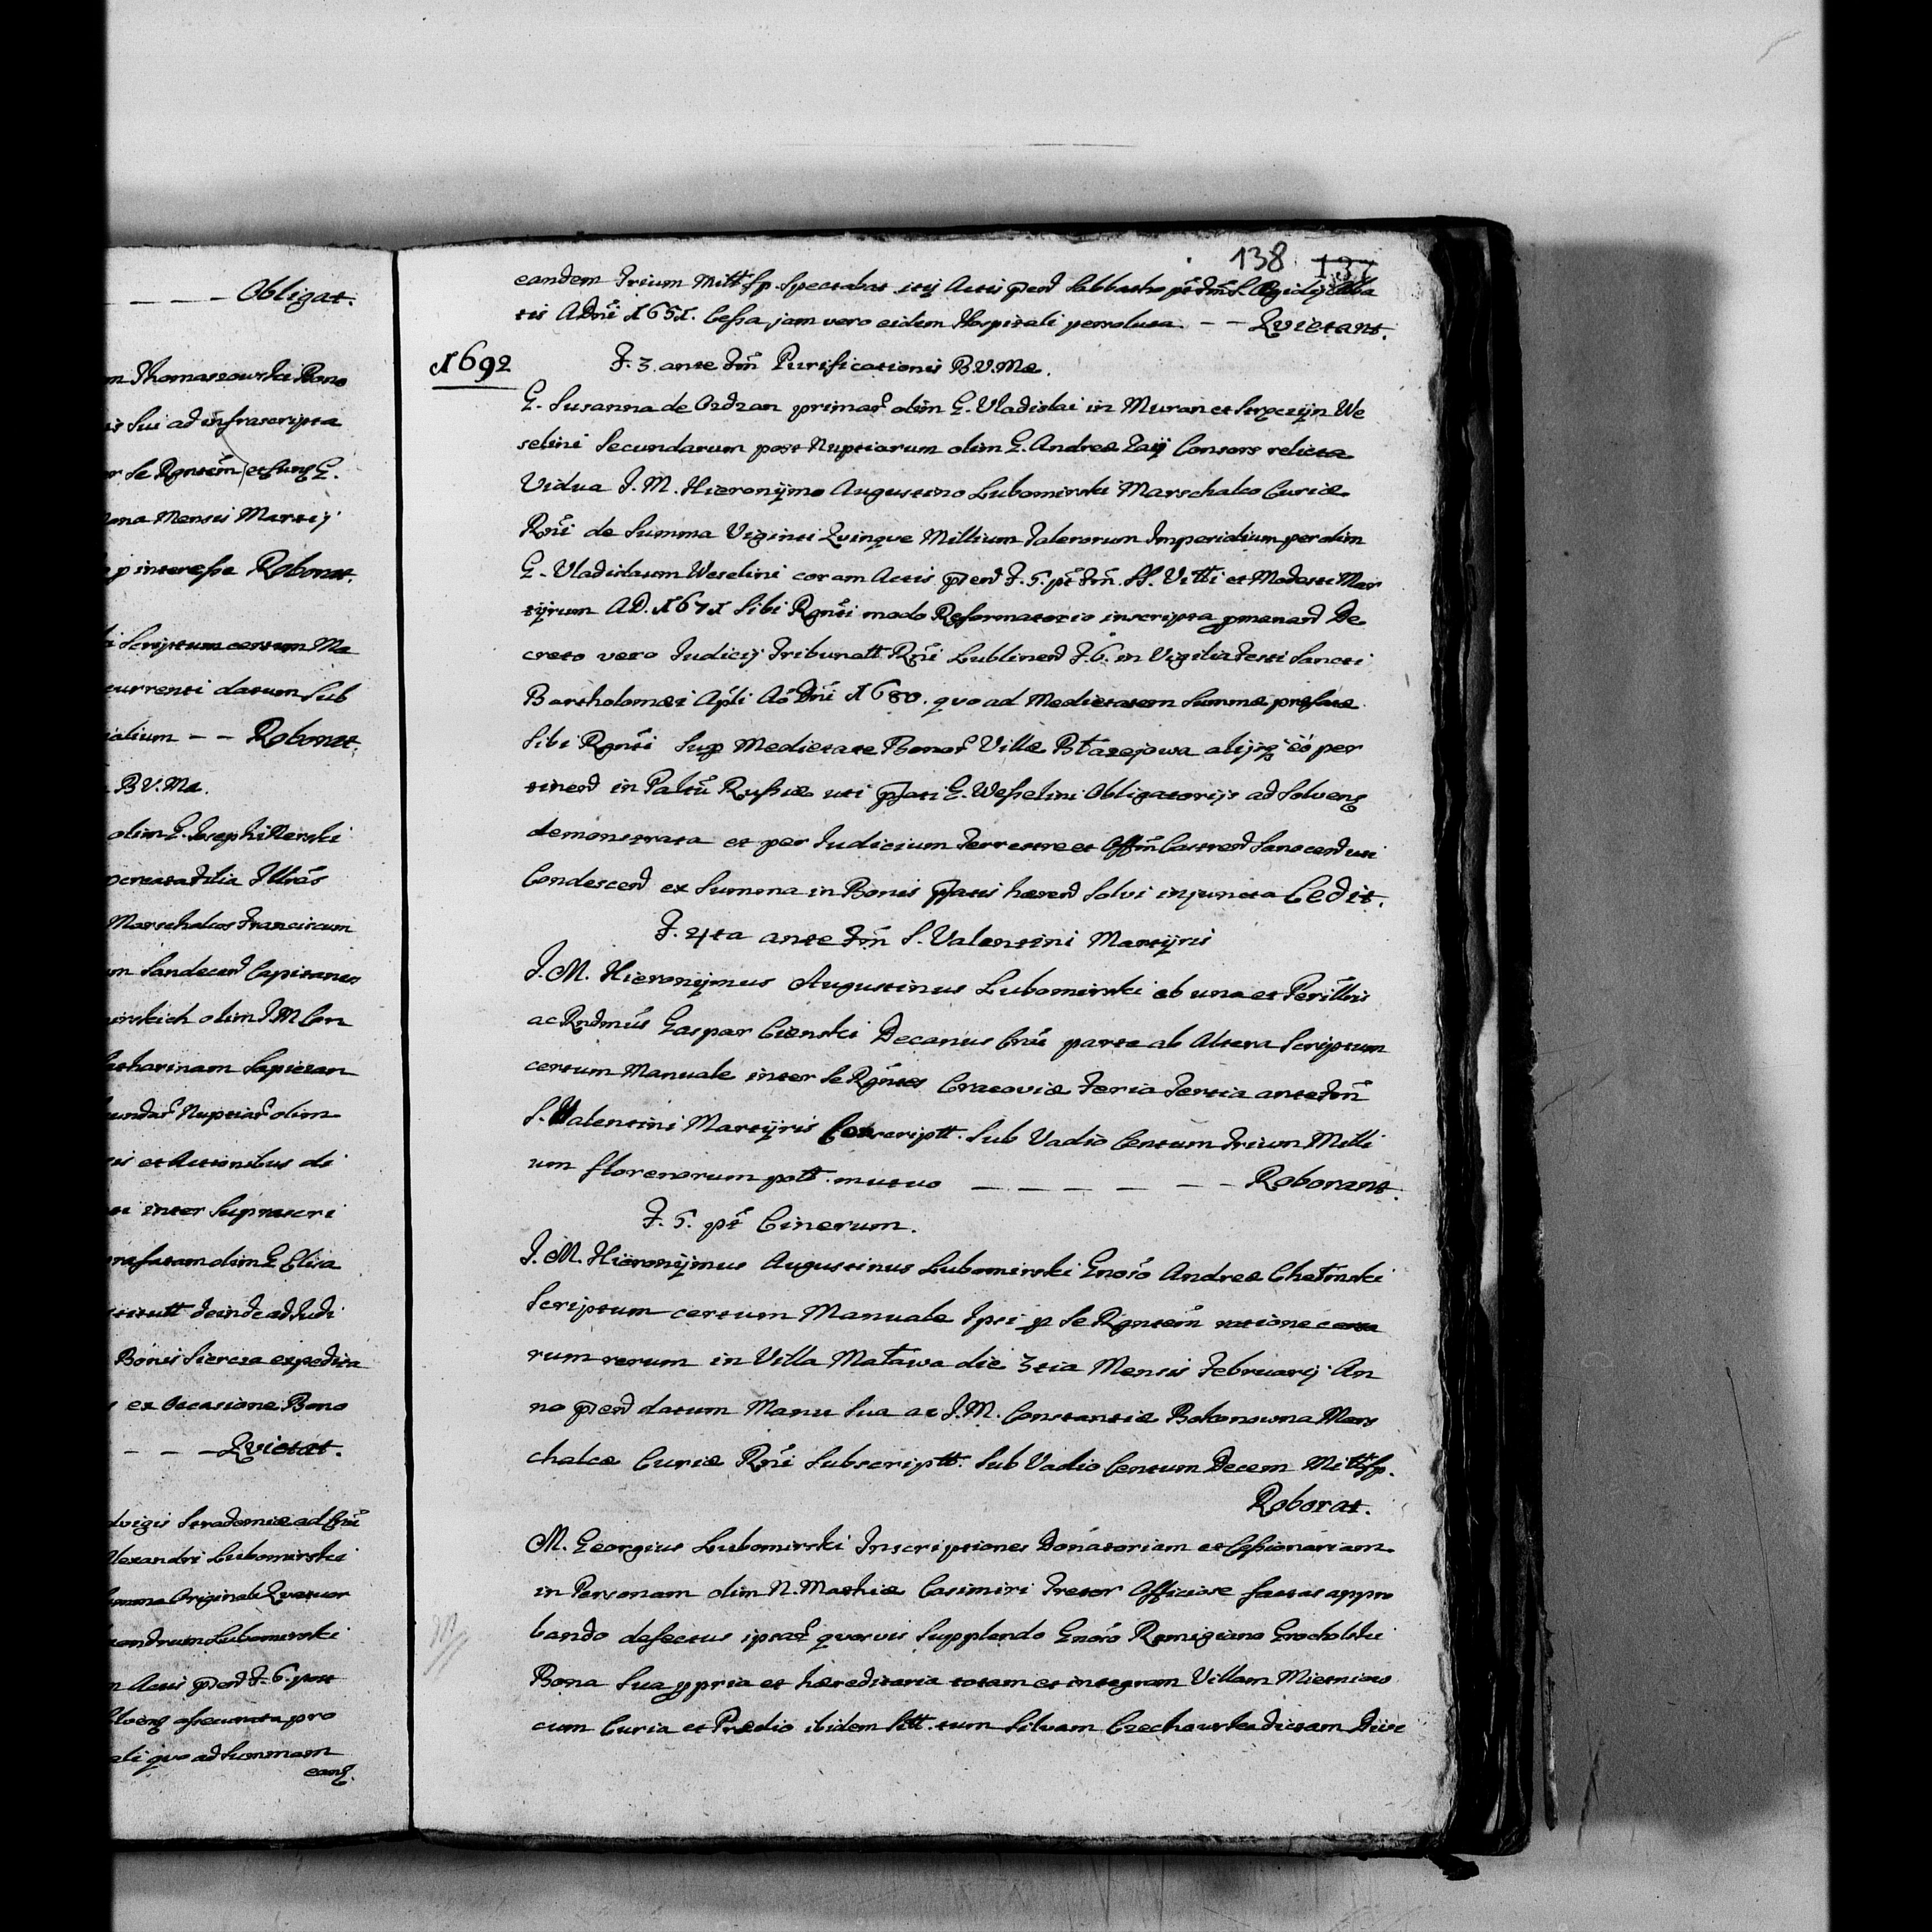 Obligat.
m Thomaszowski Bono
is sui ad infrascripta
or se Rgntem et sung G.
ona Mensis Martij
p interesse Roborat.
i Scriptum certum Ma
currenti datum Sub
alium - - Roborat.
B V. Mæ.
olim G. Josephi Rerski
procreata Filia Illres
Marschalcos Franciscum
m Sandecen Capitaneos
mirskich olim J M Con
atharinam Sapiezan
undar Nuptiar olim
is et Actionibus di
ti inter Suprascri
præfatam olim G. Elisa
stitutt deinde ad Judi
Bonis Siercza expedita
s ex Occasione Bono
- - - Qvietat.
dvigis Stradomiæ ad Crac
Alexandri Lubomirski
Summa Originali Qvatuor
xandrum Lubomirski
n Actis pñen F. 6. post
olveng assecurata pro
eli quo ad Summam
eang.
138 137
eandem Trium Mill fp. Spectabat itij Actis pñen Sabbatho pt Fm S. Ægidij Abba
tis A Dni 1651. Cessa, jam vero eidem Hospitali persoluta. - - Qvietant.
1692 F. 3. ante Fm Purificationis B.V.Mæ.
G. Susanna de Ordzan primar olim G. Vladislai in Muran et Stryczyn We
selini Secundarum post Nuptiarum olim G. Andreæ Zaij Consors relicta
Vidua J. M. Hieronijmo Augustino Lubomirski Marschalco Curiæ
Rni de Summa Viginti Qvinqve Millium Talerorum Imperialium per olim
G. Vladislaum Weselini coram Actis pñen F. 5. pt Fm. SS. Viti et Modesti Mar
tijrum A.D. 1671 Sibi Rgnti modo Reformatorio inscripta pmanen De
creto vero Judicij Tribunall Rni Lublinen F. 6. in Vigilia Festi Sancti
Bartholomæi Apli Ao Dni 1680. quo ad Medietatem Summæ præfatæ
Sibi Rgnti Sup Medietate Bonor Villæ Błazejowa alijsq eo per
tinen in Paltu Russiæ uti pfati G. Wesselini Obligatorijs ad Solveng
demonstrata et per Judicium Terrestre et Offm Castren Sanocen uti
Condescen ex Summa in Bonis pfatis hæren Solvi injuncta Cedit.
F. 4ta ante Fm S. Valentini Martijris
J. M. Hieronijmus Augustinus Lubomirski ab una et Perillris
ac Rndmus Gaspar Cienski Decanus Crac parte ab Altera Scriptum
certum Manuale inter Se Rgntes Cracoviæ Feria Tertia ante Fm
S. Valentini Martijris Conscriptt. Sub Vadio Centum Trium Milli
um florenorum poll. mutuo - - - - - - Roborant.
F. 5. pt Cinerum.
J. M. Hieronijmus Augustinus Lubomirski Gnoso Andreæ Chełmski
Scriptum certum Manuale Ipsi p Se Rgntem ratione certa
rum rerum in Villa Matawa die 3tia Mensis Februarij An
no pñen datum Manu Sua ac J. M. Constantiæ Bokonowna Mars
chalcæ Curiæ Rni Subscriptt. Sub Vadio Centum Decem Mill fp.
Roborat.
M. Georgius Lubomirski Inscriptiones Donatoriam et Cessionariam
in Personam olim N. Mathiæ Casimiri Treter Officiose factas appro
bando defectus ipsar quosvis Supplendo Gnoso Remigiano Grocholski
Bona Sua ppria et hæreditaria totam et integram Villam Mietniow
cum Curia et Prædio ibidem Sitt. tum Silvam Czechowska dictam Dive